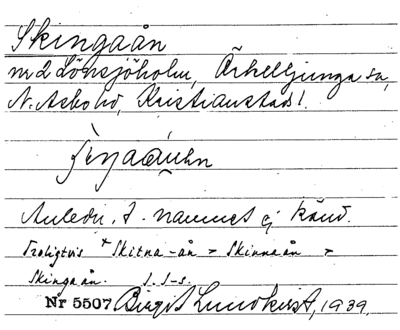 Skingaån
nr 2 Lönsjöholm, Örkelljunga sn,
N. Åsbo hd, Kristianstads l.
Anledn. t. namnet ej känd.
Troligtvis * Skitna-ån > Skinnaån >
Skingaån. J. S-s.
Nr 5507 Birgit Lundkvist, 1939.